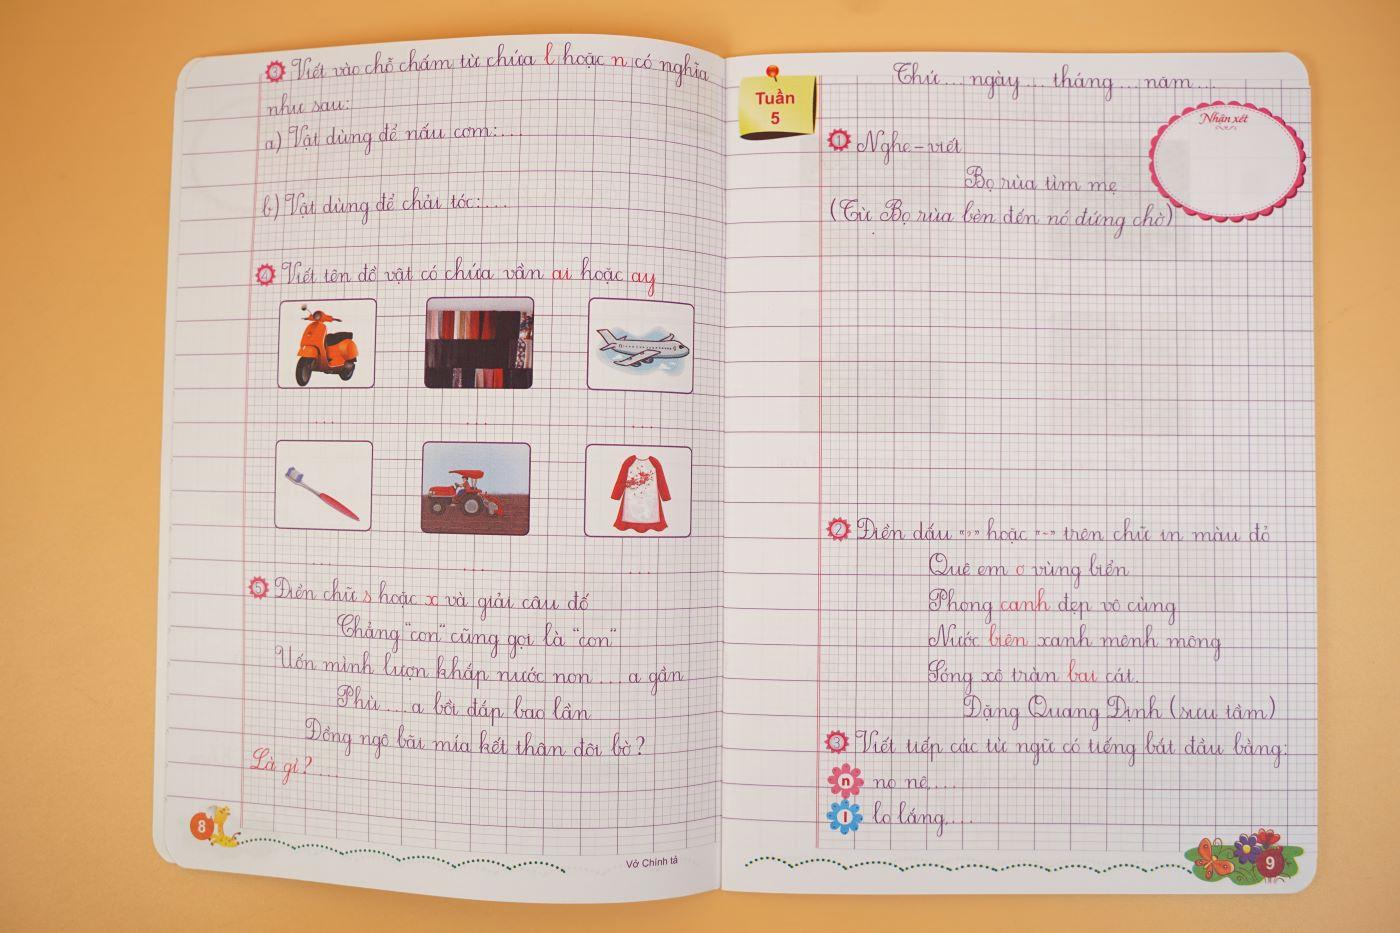 3 Viết vào chỗ chấm từ chứa l hoặc n có nghĩa
như sau:
a) Vật dùng để nấu cơm:...
b) Vật dùng để chải tóc:...
4 Viết tên đồ vật có chứa vần ai hoặc ay
... ... ...
... ... ...
5 Điền chữ s hoặc x và giải câu đố
Chẳng "con" cũng gọi là "con"
Uốn mình lượn khắp nước non ... a gần
Phù ... a bồi đắp bao lần
Đồng ngô bãi mía kết thân đôi bờ?
Là gì? ...
8
Vở Chính tả
Tuần
5
Thứ ... ngày ... tháng ... năm ...
Nhận xét
1 Nghe - viết
Bọ rùa tìm mẹ
(Từ Bọ rùa bèn đến nó đứng chờ)
2 Điền dấu "?" hoặc "~" trên chữ in màu đỏ
Quê em ơ vùng biển
Phong canh đẹp vô cùng
Nước biên xanh mênh mông
Sóng xô tràn bai cát.
Đặng Quang Định (sưu tầm)
3 Viết tiếp các từ ngữ có tiếng bắt đầu bằng:
n no nê,...
l lo lắng,...
9